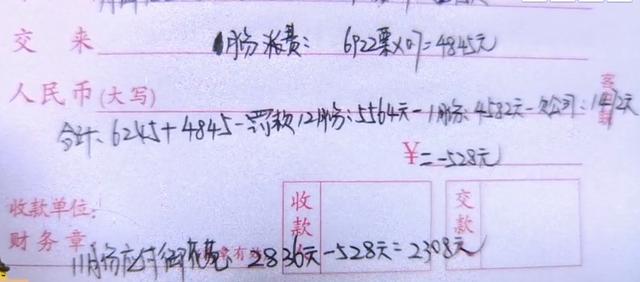 交 来 1月份派费: 6922票×0.7=4845元
人民币(大写)
合计: 6245+4845-罚款12月份:5564元-1月份:4582元-欠公司:1472元
¥=-528元
收款单位: 收款 交款
财务章 有效
11月份应付 2836元-528元=2308元